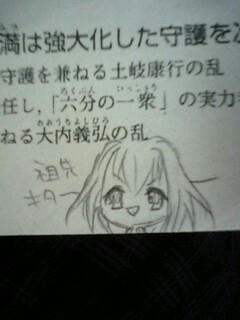 満は強大化した守護を
守護を兼ねる土岐康行の乱
任し,「六分の一衆」の実力
ねる大内義弘の乱
祖先
キター